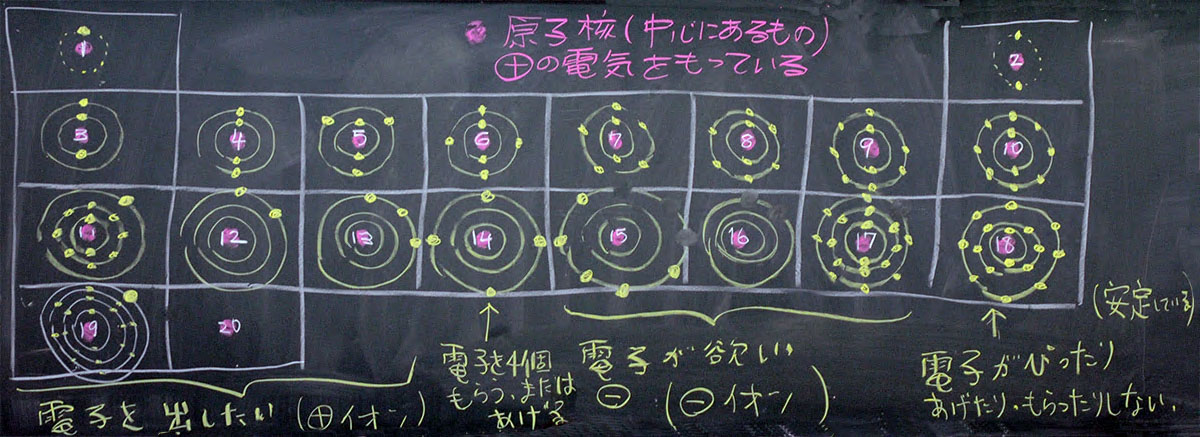 原子核(中心にあるもの)
⊕の電気をもっている
1
2
3 4 5 6 7 8 9 10
11 12 13 14 15 16 17 18
19 20
(安定している)
電子を出したい(⊕イオン)
電子を4個
もらう、または
あげる
電子が欲しい
⊖ (⊖イオン)
電子がぴったり
あげたり、もらったりしない。